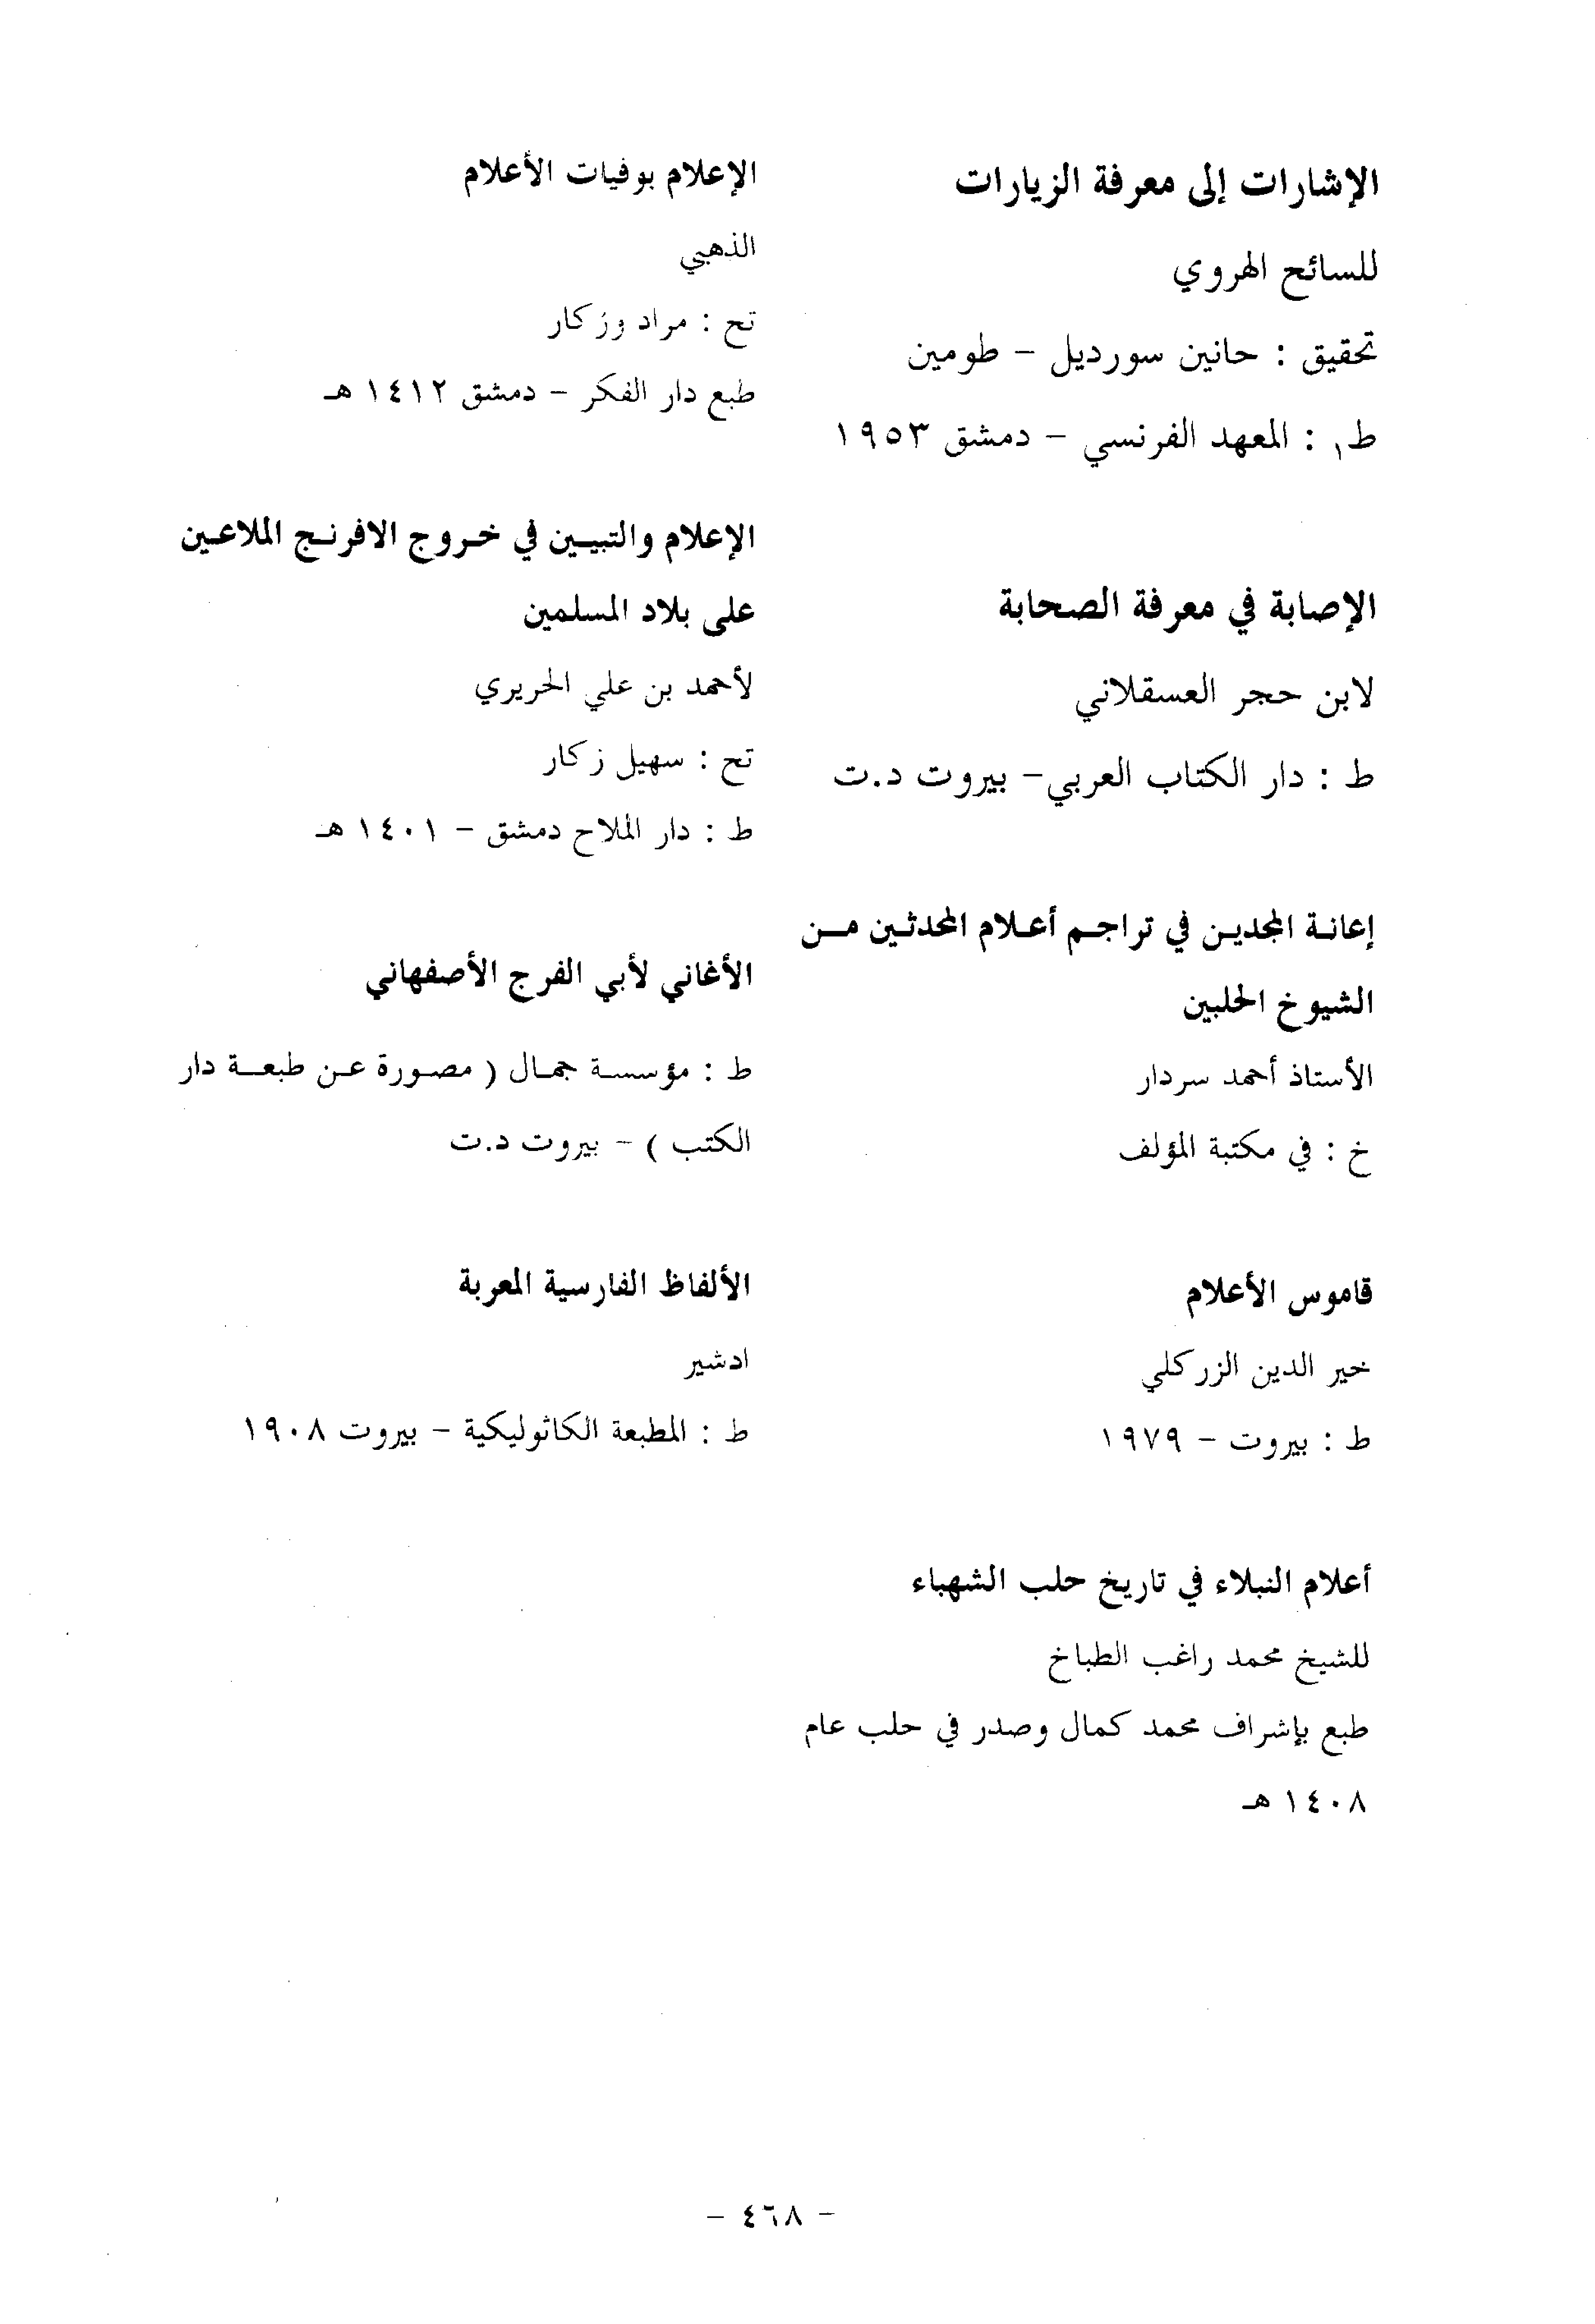 الإشارات إلى معرفة الزيارات
للسائح الهروي
تحقيق : حانين سورديل – طومين
ط١ : المعهد الفرنسي – دمشق ١٩٥٣
الإصابة في معرفة الصحابة
لابن حجر العسقلاني
ط : دار الكتاب العربي– بيروت د.ت
إعانة المجدين في تراجم أعلام المحدثين من
الشيوخ الحلبين
الأستاذ أحمد سردار
خ : في مكتبة المؤلف
قاموس الأعلام
خير الدين الزركلي
ط : بيروت – ١٩٧٩
أعلام النبلاء في تاريخ حلب الشهباء
للشيخ محمد راغب الطباخ
طبع بإشراف محمد كمال وصدر في حلب عام
١٤٠٨ هـ
الإعلام بوفيات الأعلام
الذهبي
تح : مراد وزكار
طبع دار الفكر – دمشق ١٤١٢ هـ
الإعلام والتبيين في خروج الافرنج الملاعين
على بلاد المسلمين
لأحمد بن علي الحريري
تح : سهيل زكار
ط : دار الملاح دمشق – ١٤٠١ هـ
الأغاني لأبي الفرج الأصفهاني
ط : مؤسسة جمال ( مصورة عن طبعة دار
الكتب ) – بيروت د.ت
الألفاظ الفارسية المعربة
ادشير
ط : المطبعة الكاثوليكية – بيروت ١٩٠٨
– ٤٦٨ –